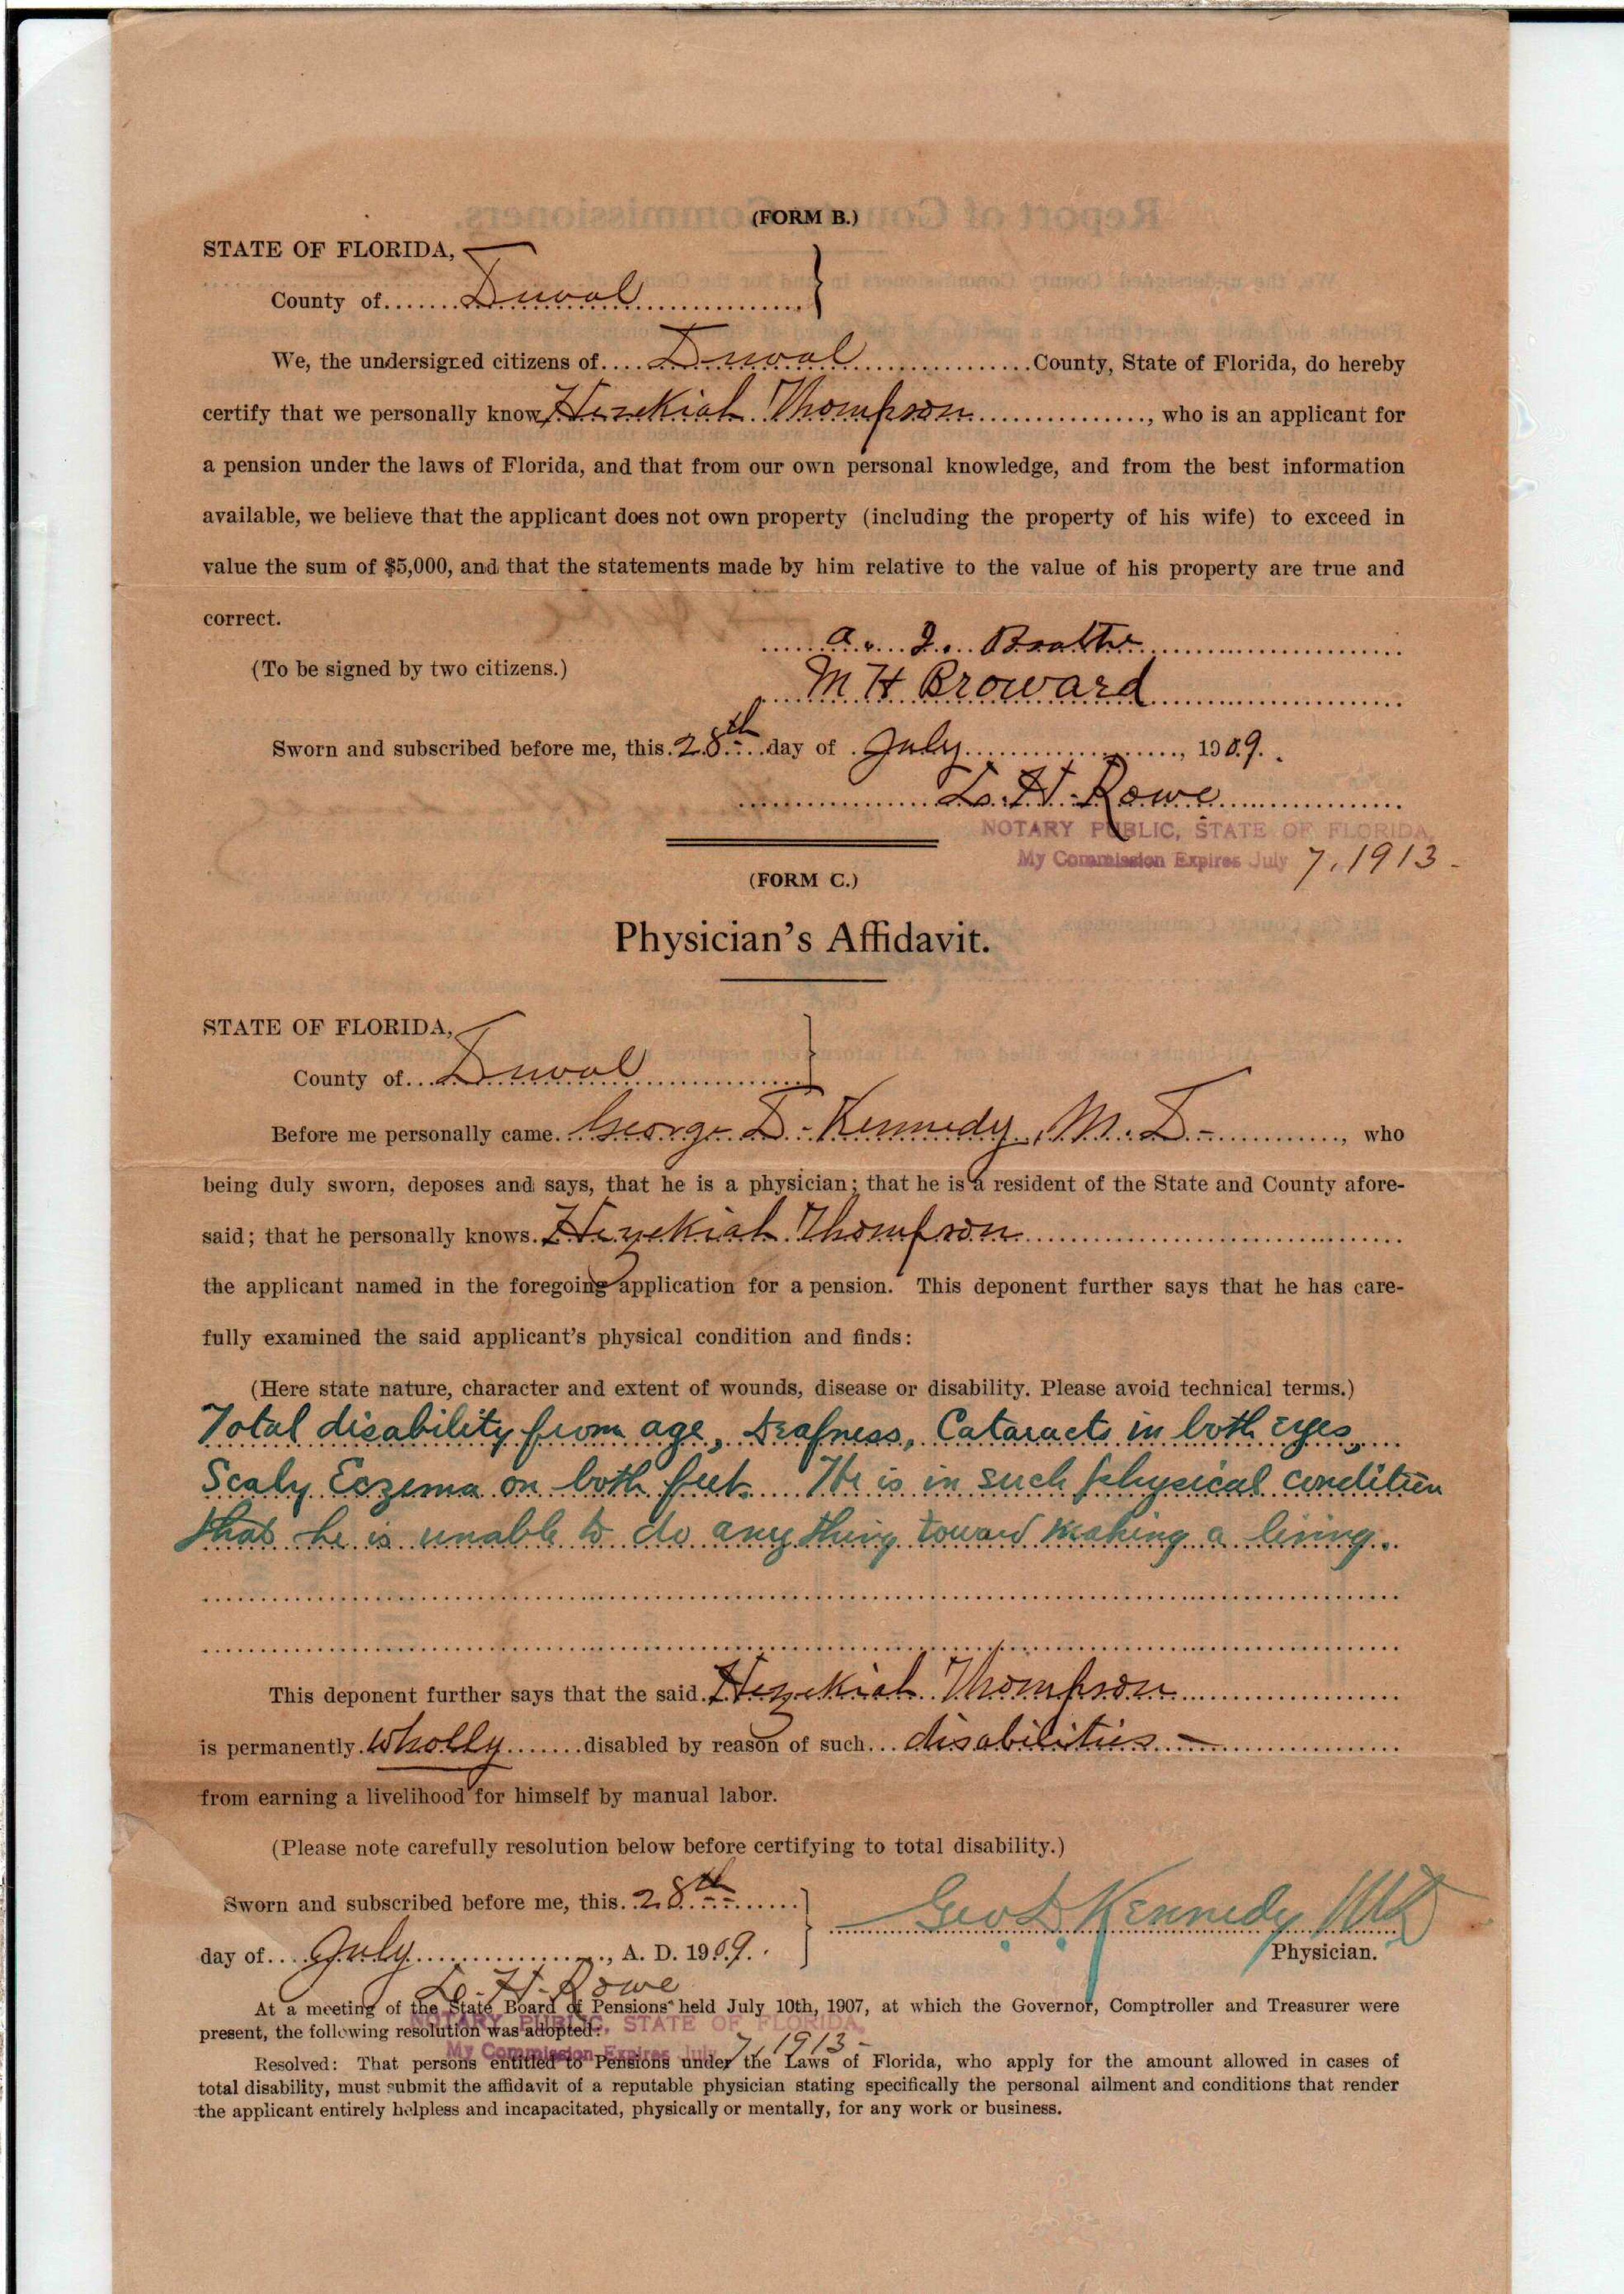 (FORM B.)
STATE OF FLORIDA,
County of Duval
We, the undersigned citizens of Duval County, State of Florida, do hereby
certify that we personally know Hezekiah Thompson, who is an applicant for
a pension under the laws of Florida, and that from our own personal knowledge, and from the best information
available, we believe that the applicant does not own property (including the property of his wife) to exceed in
value the sum of $5,000, and that the statements made by him relative to the value of his property are true and
correct.
(To be signed by two citizens.)
M H Broward
Sworn and subscribed before me, this 28th day of July, 1909.
H. Rowe
NOTARY PUBLIC, STATE OF FLORIDA,
My Commission Expires July 7, 1913-
(FORM C.)
Physician's Affidavit.
STATE OF FLORIDA,
County of Duval
Before me personally came George D. Kennedy, M. D.-, who
being duly sworn, deposes and says, that he is a physician; that he is a resident of the State and County afore-
said; that he personally knows Hezekiah Thompson
the applicant named in the foregoing application for a pension. This deponent further says that he has care-
fully examined the said applicant's physical condition and finds:
(Here state nature, character and extent of wounds, disease or disability. Please avoid technical terms.)
Total disability from age, Deafness, Cataracts in both eyes,
Scaly Eczema on both feet. He is in such physical condition
that he is unable to do any thing toward making a living.
This deponent further says that the said Hezekiah Thompson
is permanently wholly disabled by reason of such disabilities-
from earning a livelihood for himself by manual labor.
(Please note carefully resolution below before certifying to total disability.)
Sworn and subscribed before me, this 28th
day of July, A. D. 1909.
Geo D Kennedy MD
Physician.
H. Rowe
NOTARY PUBLIC, STATE OF FLORIDA,
My Commission Expires July 7, 1913-
At a meeting of the State Board of Pensions held July 10th, 1907, at which the Governor, Comptroller and Treasurer were
present, the following resolution was adopted:
Resolved: That persons entitled to Pensions under the Laws of Florida, who apply for the amount allowed in cases of
total disability, must submit the affidavit of a reputable physician stating specifically the personal ailment and conditions that render
the applicant entirely helpless and incapacitated, physically or mentally, for any work or business.